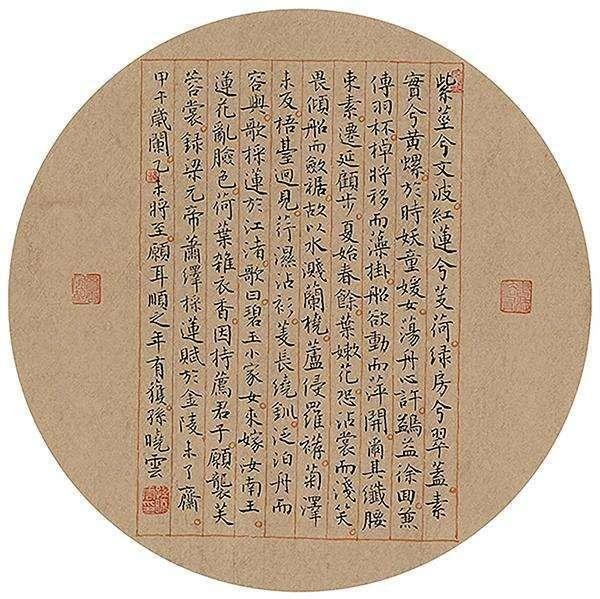 紫莖兮文波紅蓮兮芰荷綠房兮翠蓋素
實兮黃螺於時妖童媛女蕩舟心許鷁徐回兼
傳羽杯棹將移而藻掛船欲動而萍開爾其纖腰
束素遷延顧步夏始春餘葉嫩花恐沾裳而淺笑
畏傾船而斂裾故以水濺蘭橈蘆侵羅菊澤
未反梧臺迥見荇濕沾衫菱長繞釧泛泊舟而
容與歌採蓮於江渚歌曰碧玉小家女來嫁汝南王
蓮花亂臉色荷葉雜衣香因持薦君子願襲芙
蓉裳錄梁元帝蕭繹採蓮賦於金陵未了齋
甲午歲闌乙未將至願耳順之年有獲孫曉雲